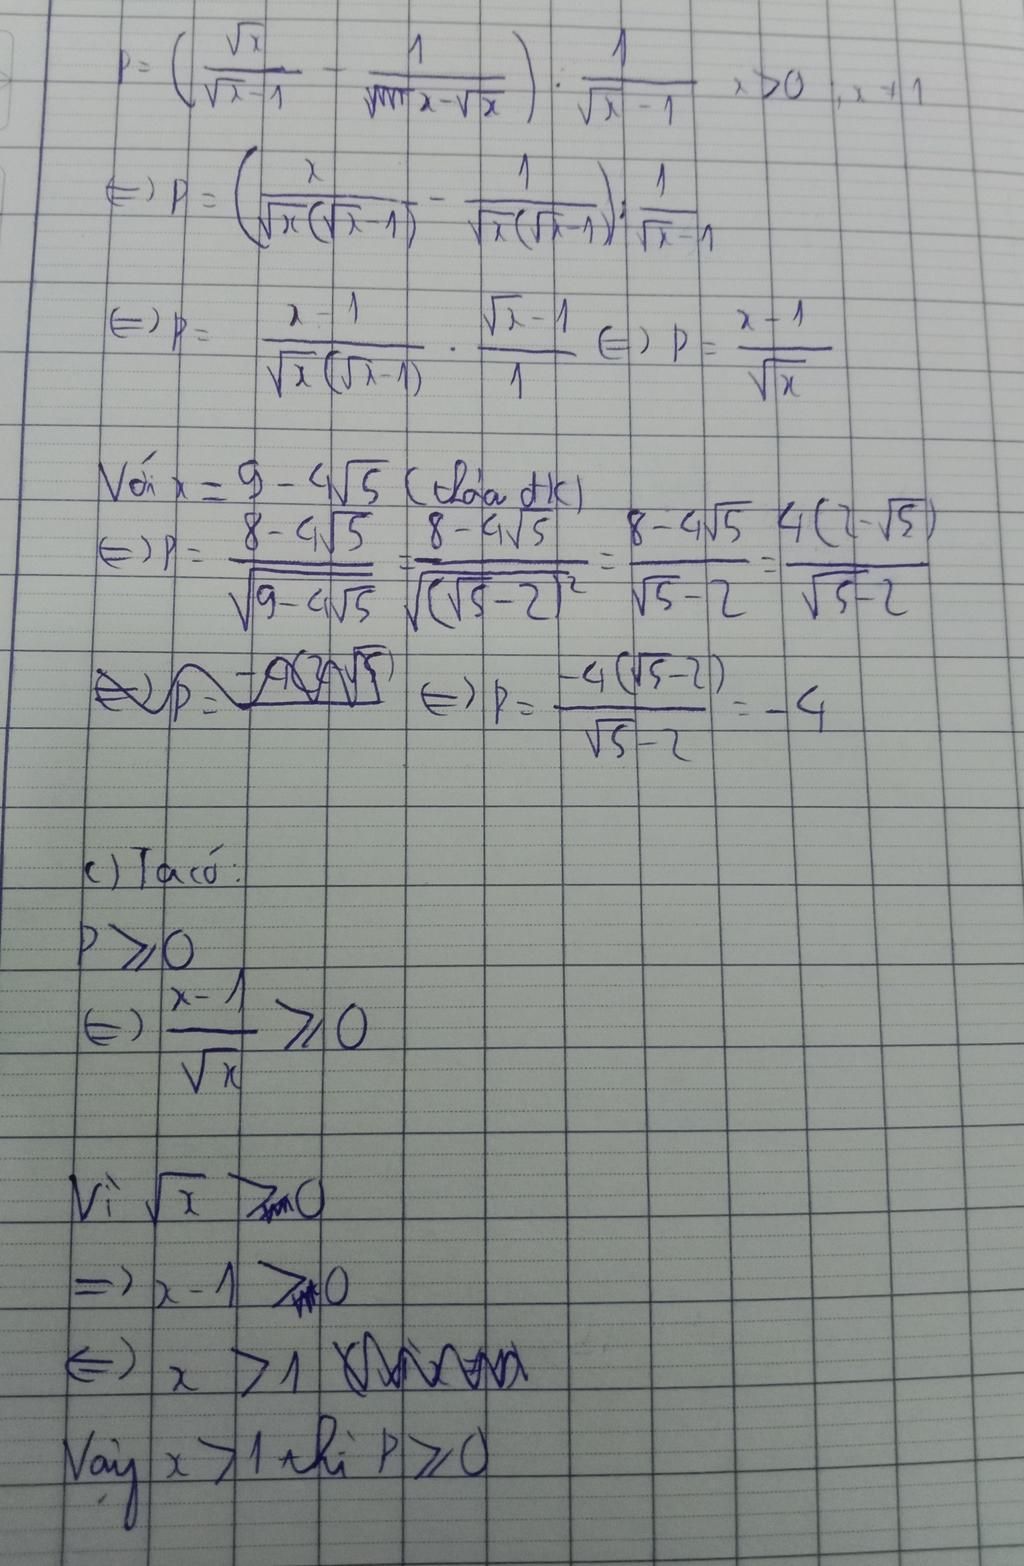 P = (√x/(√x-1) - 1/(x-√x)) : 1/(√x-1) x>0, x≠1
⇔ P = (x/(√x(√x-1)) - 1/(√x(√x-1))) : 1/(√x-1)
⇔ P = (x-1)/(√x(√x-1)) . (√x-1)/1 ⇔ P = (x-1)/√x
Với x = 9-4√5 (thỏa đk)
⇔ P = (8-4√5)/√(9-4√5) = (8-4√5)/√((√5-2)²) = (8-4√5)/(√5-2) = 4(2-√5)/(√5-2)
⇔ P = -4(√5-2)/(√5-2) = -4
c) Ta có:
P ⩾ 0
⇔ (x-1)/√x ⩾ 0
Vì √x > 0
=> x-1 > 0
⇔ x > 1
Vậy x > 1 thì P ⩾ 0